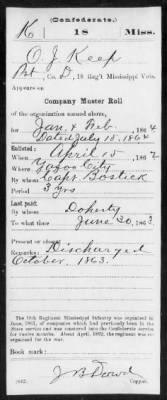 (Confederate.)
K 18 Miss.
O. J. Keep
Pvt, Co. D, 18 Reg't Mississippi Vols.
Appears on
Company Muster Roll
of the organization named above,
for Jan. & Feb., 1864
Dated July 18, 1864
Enlisted:
When April 15, 1862
Where Yazoo City
By whom Capt. Bostick
Period 3 yrs
Last paid:
By whom Doherty
To what time June 30, 1863
Present or absent
Remarks: Discharged
October, 1863.
The 18th Regiment Mississippi Infantry was organized in
June, 1861, of companies which had previously been in the
State service and was mustered into the Confederate service
for twelve months. About April, 1862, the regiment was re-
organized for the war.
Book mark:
(642)